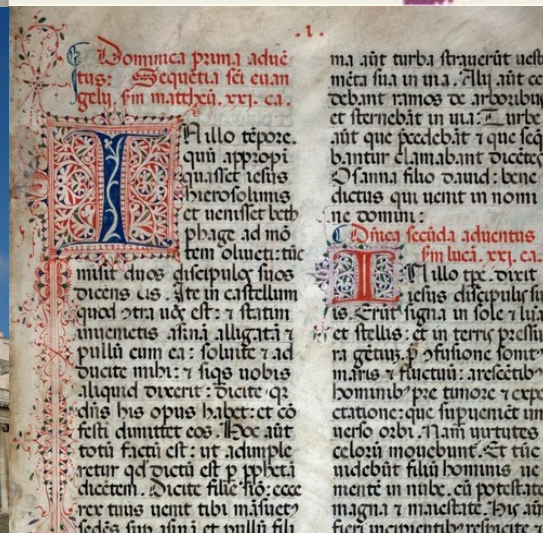 .1.
Dominica prima advē
tus: Sequētia sci euan
gelij, sm matthēū. xxi. ca.
IN illo tēpore.
quū appropi
quasset iesus
hierosolimis
et uenisset beth
phage ad mō
tem oliueti: tūc
misit duos discipulos suos
dicens eis. Ite in castellum
quod ɔtra uos est: ⁊ statim
inuenietis asinā alligatā ⁊
pullū cum ea: soluite ⁊ ad
ducite mihi: ⁊ siqs uobis
aliquid dixerit: dicite qꝛ
dn̄s his opus habet: et cō
festi dimittet eos. Hoc aūt
totū factū est: ut adimple
retur qd̓ dictū est p̱ ꝓphetā
dicētem. Dicite filie siō: ecce
rex tuus uenit tibi māsuetꝰ
sedēs sup asinā et pullū fili
ma aūt turba strauerūt uest
mēta sua in uia. Alij aūt ce
debant ramos de arboribus
et sternebāt in uia: Turbe
aūt que p̄cedebāt ⁊ que seq
bantur clamabant dicētes
Osanna filio dauid: bene
dictus qui uenit in nomi
ne domini:
Dn̄ica secūda aduentus
sm lucā. xxi. ca.
IN illo tpe. dixit
iesus discipulis su
is. Erūt signa in sole ⁊ lūa
et stellis: et in terris pressu
ra gētiuȝ. p̄ ɔfusione sonitꝰ
maris ⁊ fluctuū: arescētibꝰ
hominibꝰ pre timore ⁊ expe
ctatione: que supuenient un
uerso orbi. Nam uirtutes
celorū mouebunt᷑. Et tūc
uidebūt filiū hominis ue
nientē in nube. cū potestate
magna ⁊ maiestate. His aūt
fieri incipientibꝰ respicite ⁊